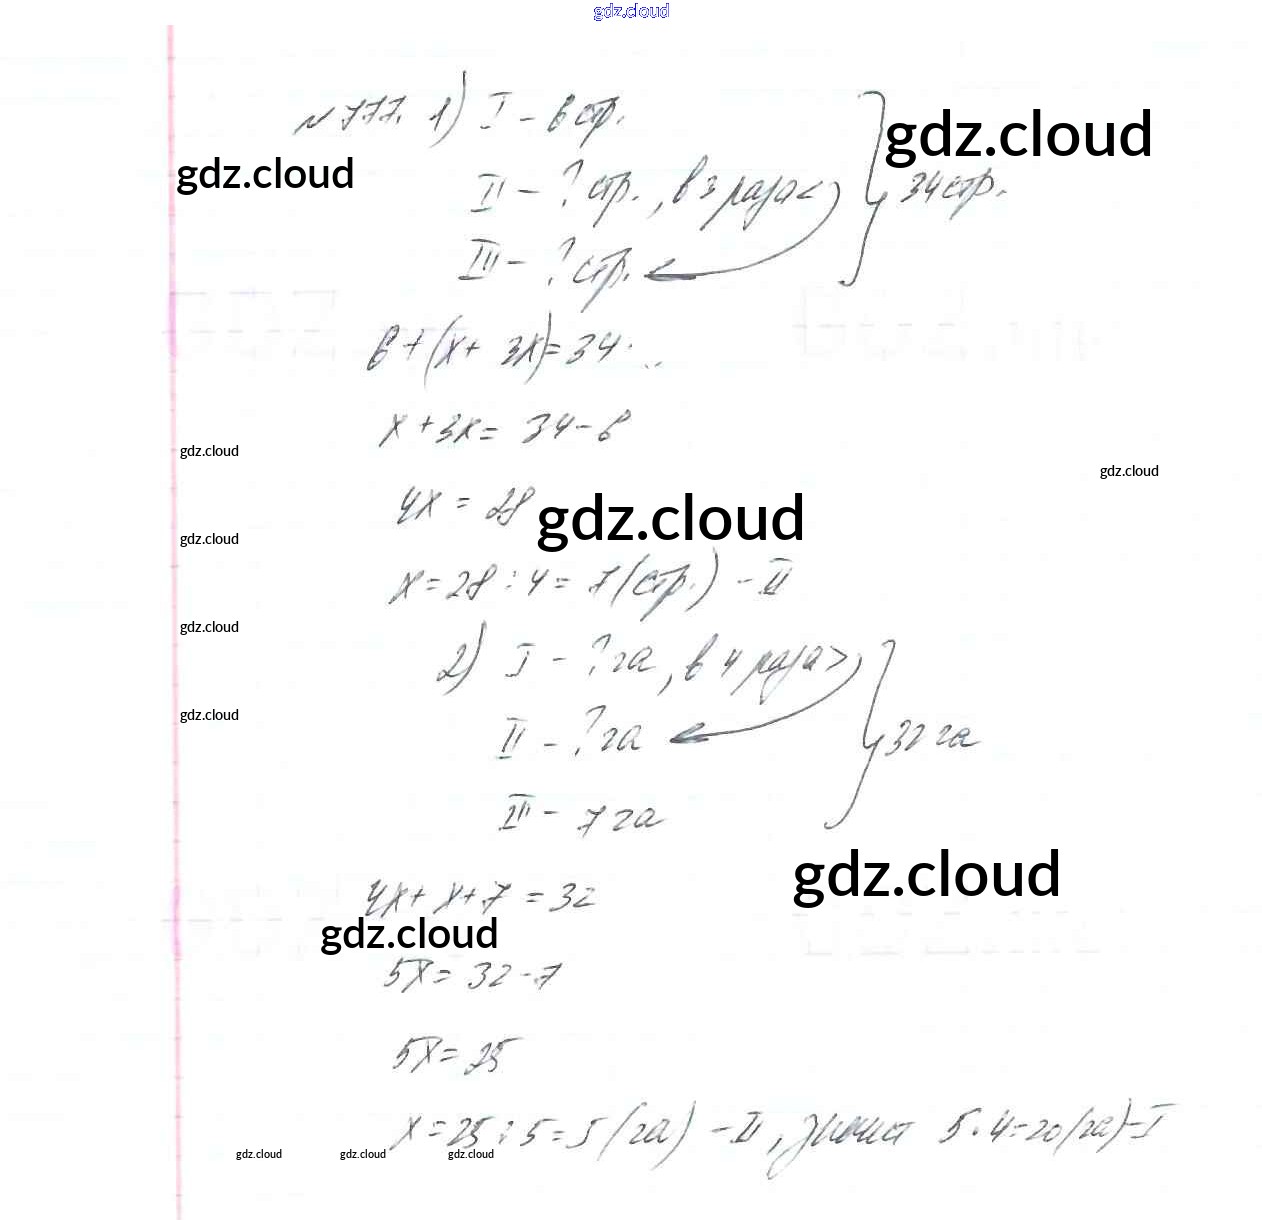 gdz.cloud
№777. 1) I - 6 стр.
gdz.cloud
gdz.cloud
II - ? стр., в 3 раза <
34 стр.
III - ? стр.
6+(x+ 3x)=34
x+3x= 34-6
gdz.cloud
gdz.cloud
4x = 28
gdz.cloud
gdz.cloud
x=28:4= 7(стр.) - II
gdz.cloud
2) I - ? га, в 4 раза >
gdz.cloud
II - ? га
32 га
III - 7 га
gdz.cloud
4x+ x+7 = 32
gdz.cloud
5x= 32-7
5x= 25
x=25:5=5 (га) - II, значит 5·4=20(га)-I
gdz.cloud gdz.cloud gdz.cloud